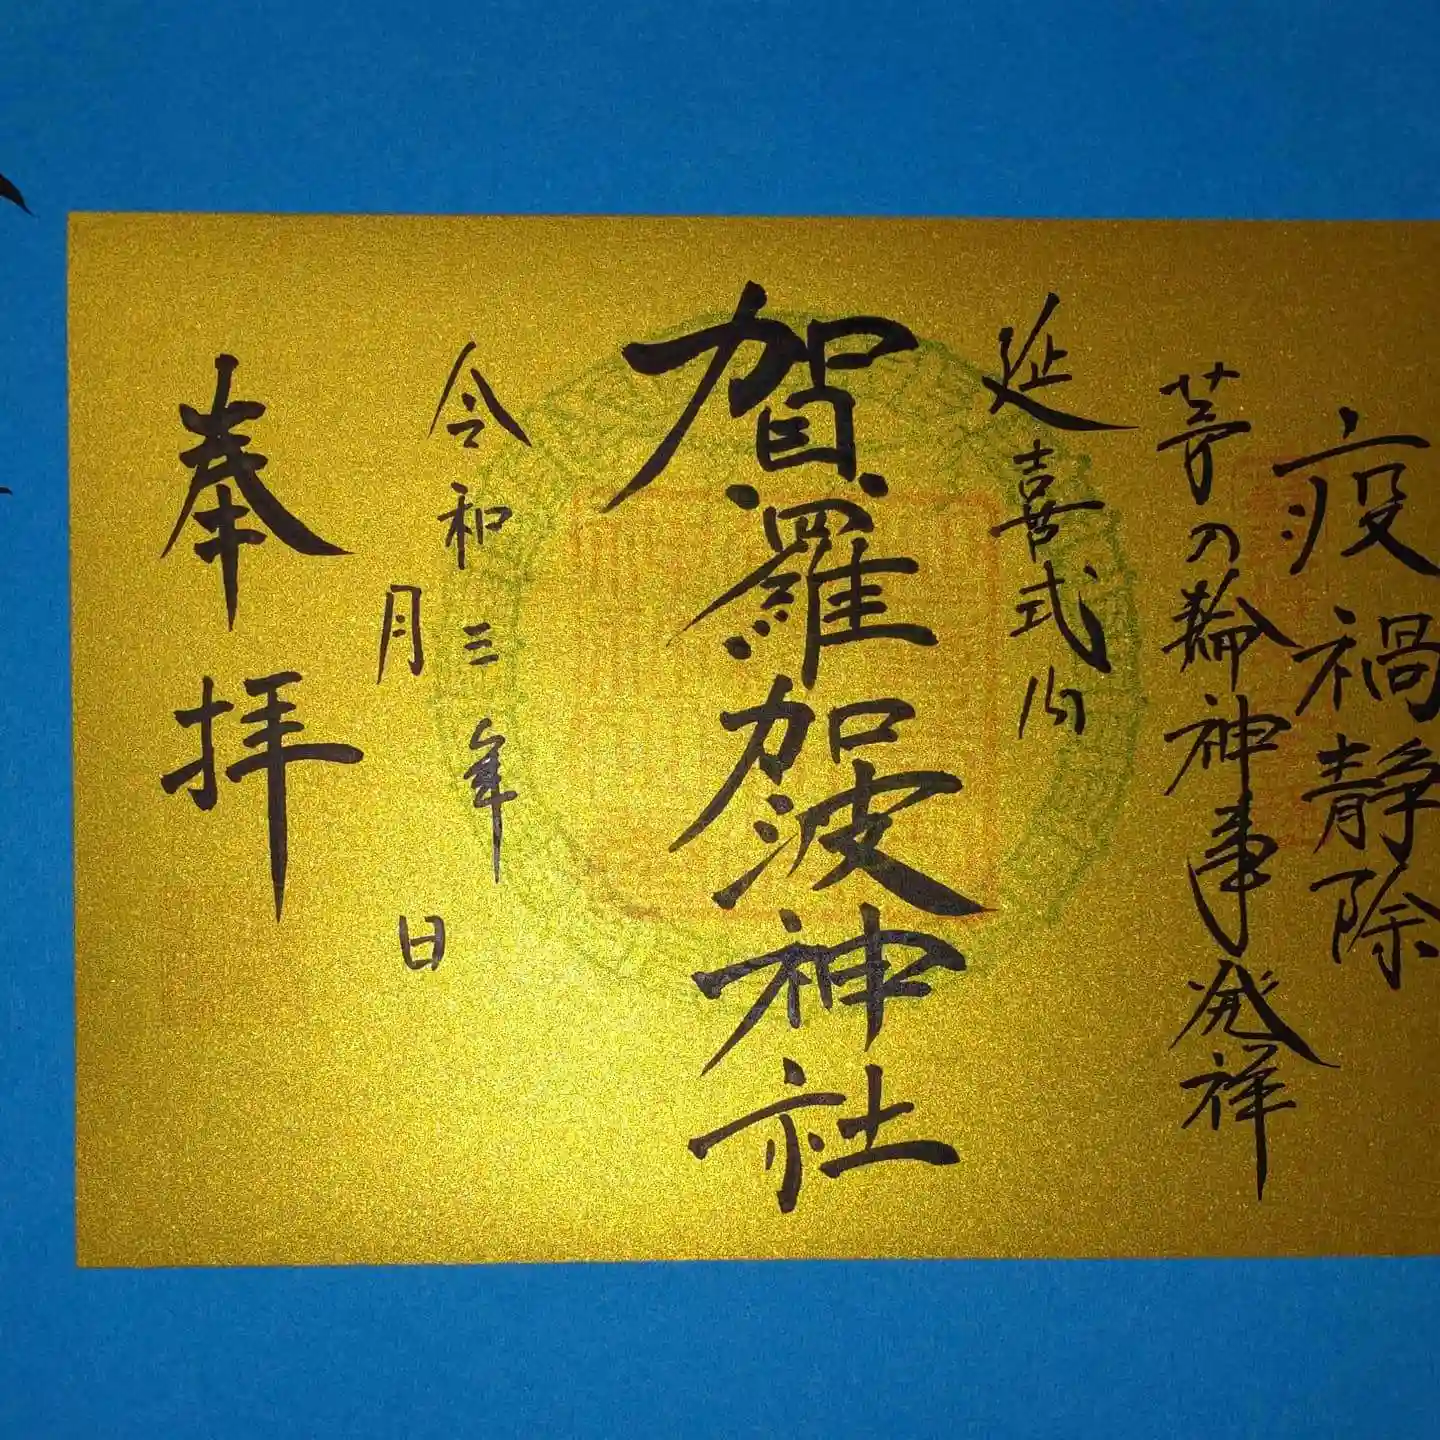 疫禍静除
茅の輪神事発祥
延喜式内
賀羅加波神社
令和三年
月　日
奉拝